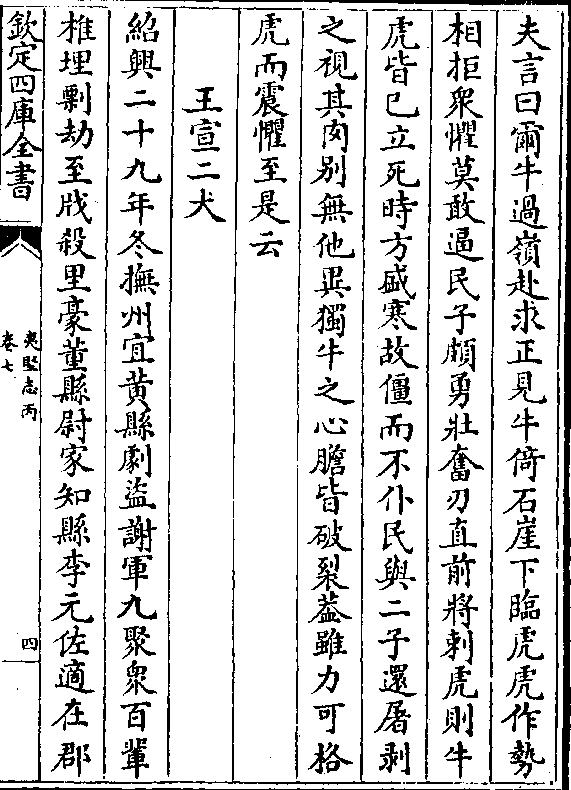 夫言曰爾牛過嶺赴求正見牛倚石崖下臨虎虎作勢
相拒衆懼莫敢逼民子頗勇壯奮刃直前將刺虎則牛
虎皆已立死時方盛寒故僵而不仆民與二子還屠剥
之視其肉别無他異獨牛之心膽皆破裂葢雖力可格
虎而震懼至是云
王宣二犬
紹興二十九年冬撫州宜黄縣劇盜謝軍九聚衆百輩
椎埋剽劫至戕殺里豪董縣尉家知縣李元佐適在郡
欽定四庫全書
夷堅志丙
卷七
四